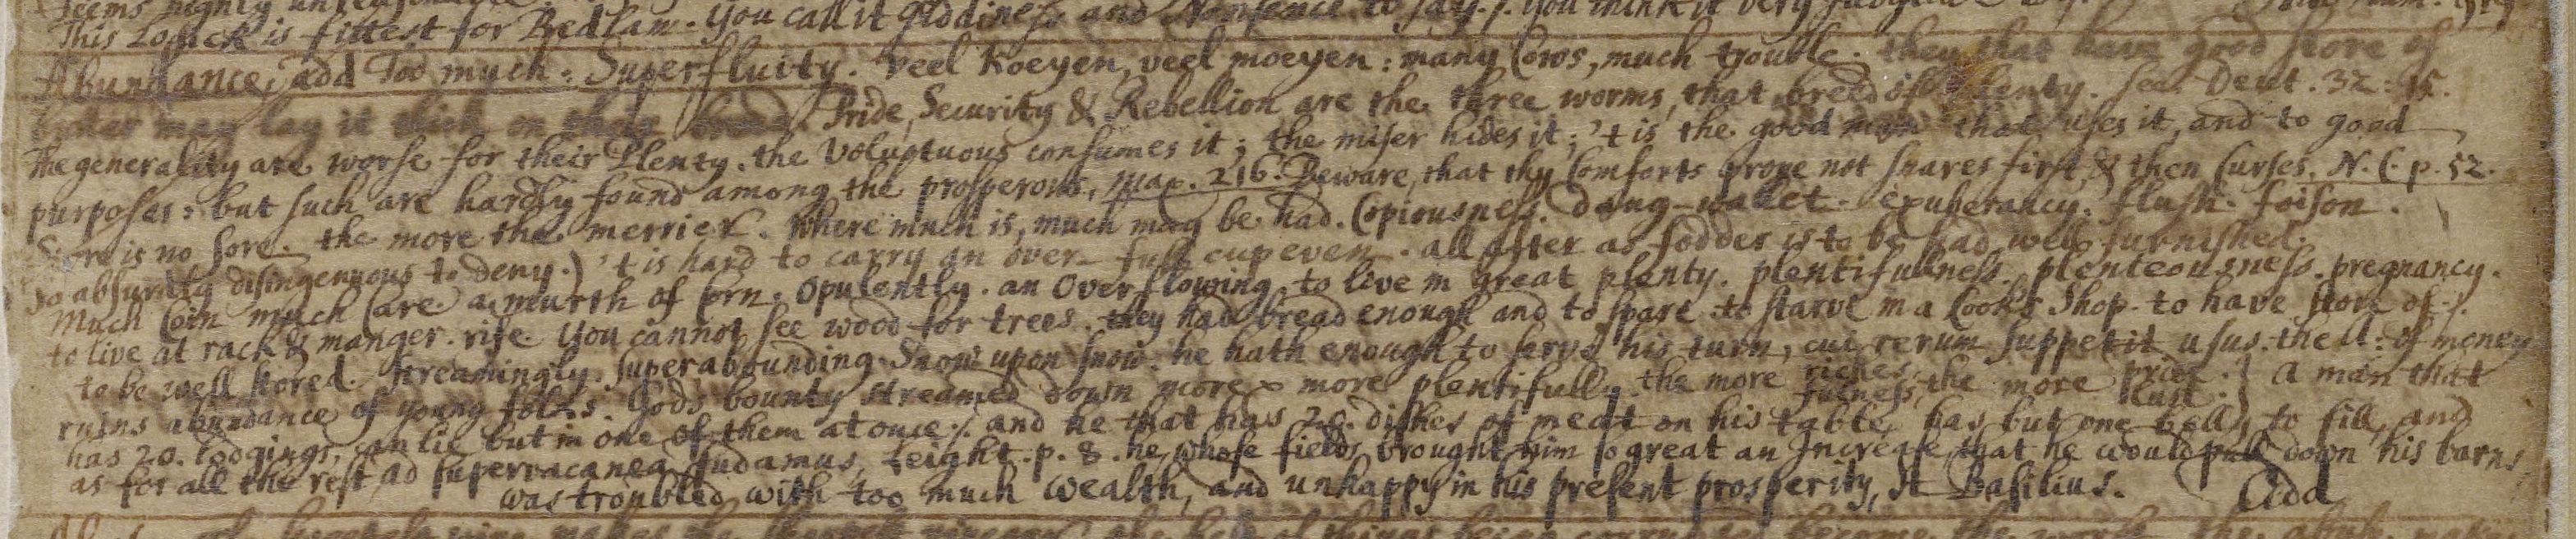 This Logick is fittest for Bedlam. You call it giddiness and Nonsence to say. /. You think it very
Abundance, add Too much: Superfluity. Veel Koeyen, veel moeyen: many Cows, much trouble. they that have good store of
butter may lay it thick on their bread. Pride, Security & Rebellion are the three worms, that breed of Plenty. see. Deut. 32: 15.
The generality are worse for their Plenty. the voluptuous consumes it; the miser hides it; 't is the good man that uses it, and to good
purposes: but such are hardly found among the prosperous, Max. 216. Beware, that thy Comforts prove not snares first, & then Curses. N. C. p. 52.
Store is no sore. the more the merrier. Where much is, much may be had. Copiousness. dang-wallet. exuberancy. flush. foison.
So absurdly disingenuous to deny.) 't is hard to carry an over-full cup even. all after as fodder is to be had. well furnished.
Much Coin much Care. a murth of Corn. Opulently. an Overflowing. to live in great plenty. plentifullness. plenteousness. pregnancy.
to live at rack & manger. rife. You cannot see wood for trees. they had bread enough and to spare. to starve in a Cook's Shop. to have store of ./.
to be well stored. streamingly. superabounding. Snow upon snow. he hath enough to serve his turn, cui rerum suppetit usus. the A: of money
ruins abundance of young folks. Gods bounty streamed down more & more plentifully. the more riches, the more pride.} A man that
fulness, lust.
has 20. lodgings, can lie but in one of them at once ./. and he that has 20. dishes of meat on his table has but one belly to fill, and
as for all the rest, ad supervacanea sudamus, Leight. p. 8. he, whose fields brought him so great an Increase, that he would pull down his barns,
was troubled with too much wealth, and unhappy in his present prosperity, St Basilius. Add